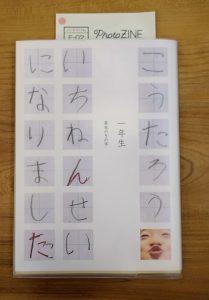 PhotoZINE
こうたろう
一年生
いちねんせい
になりました